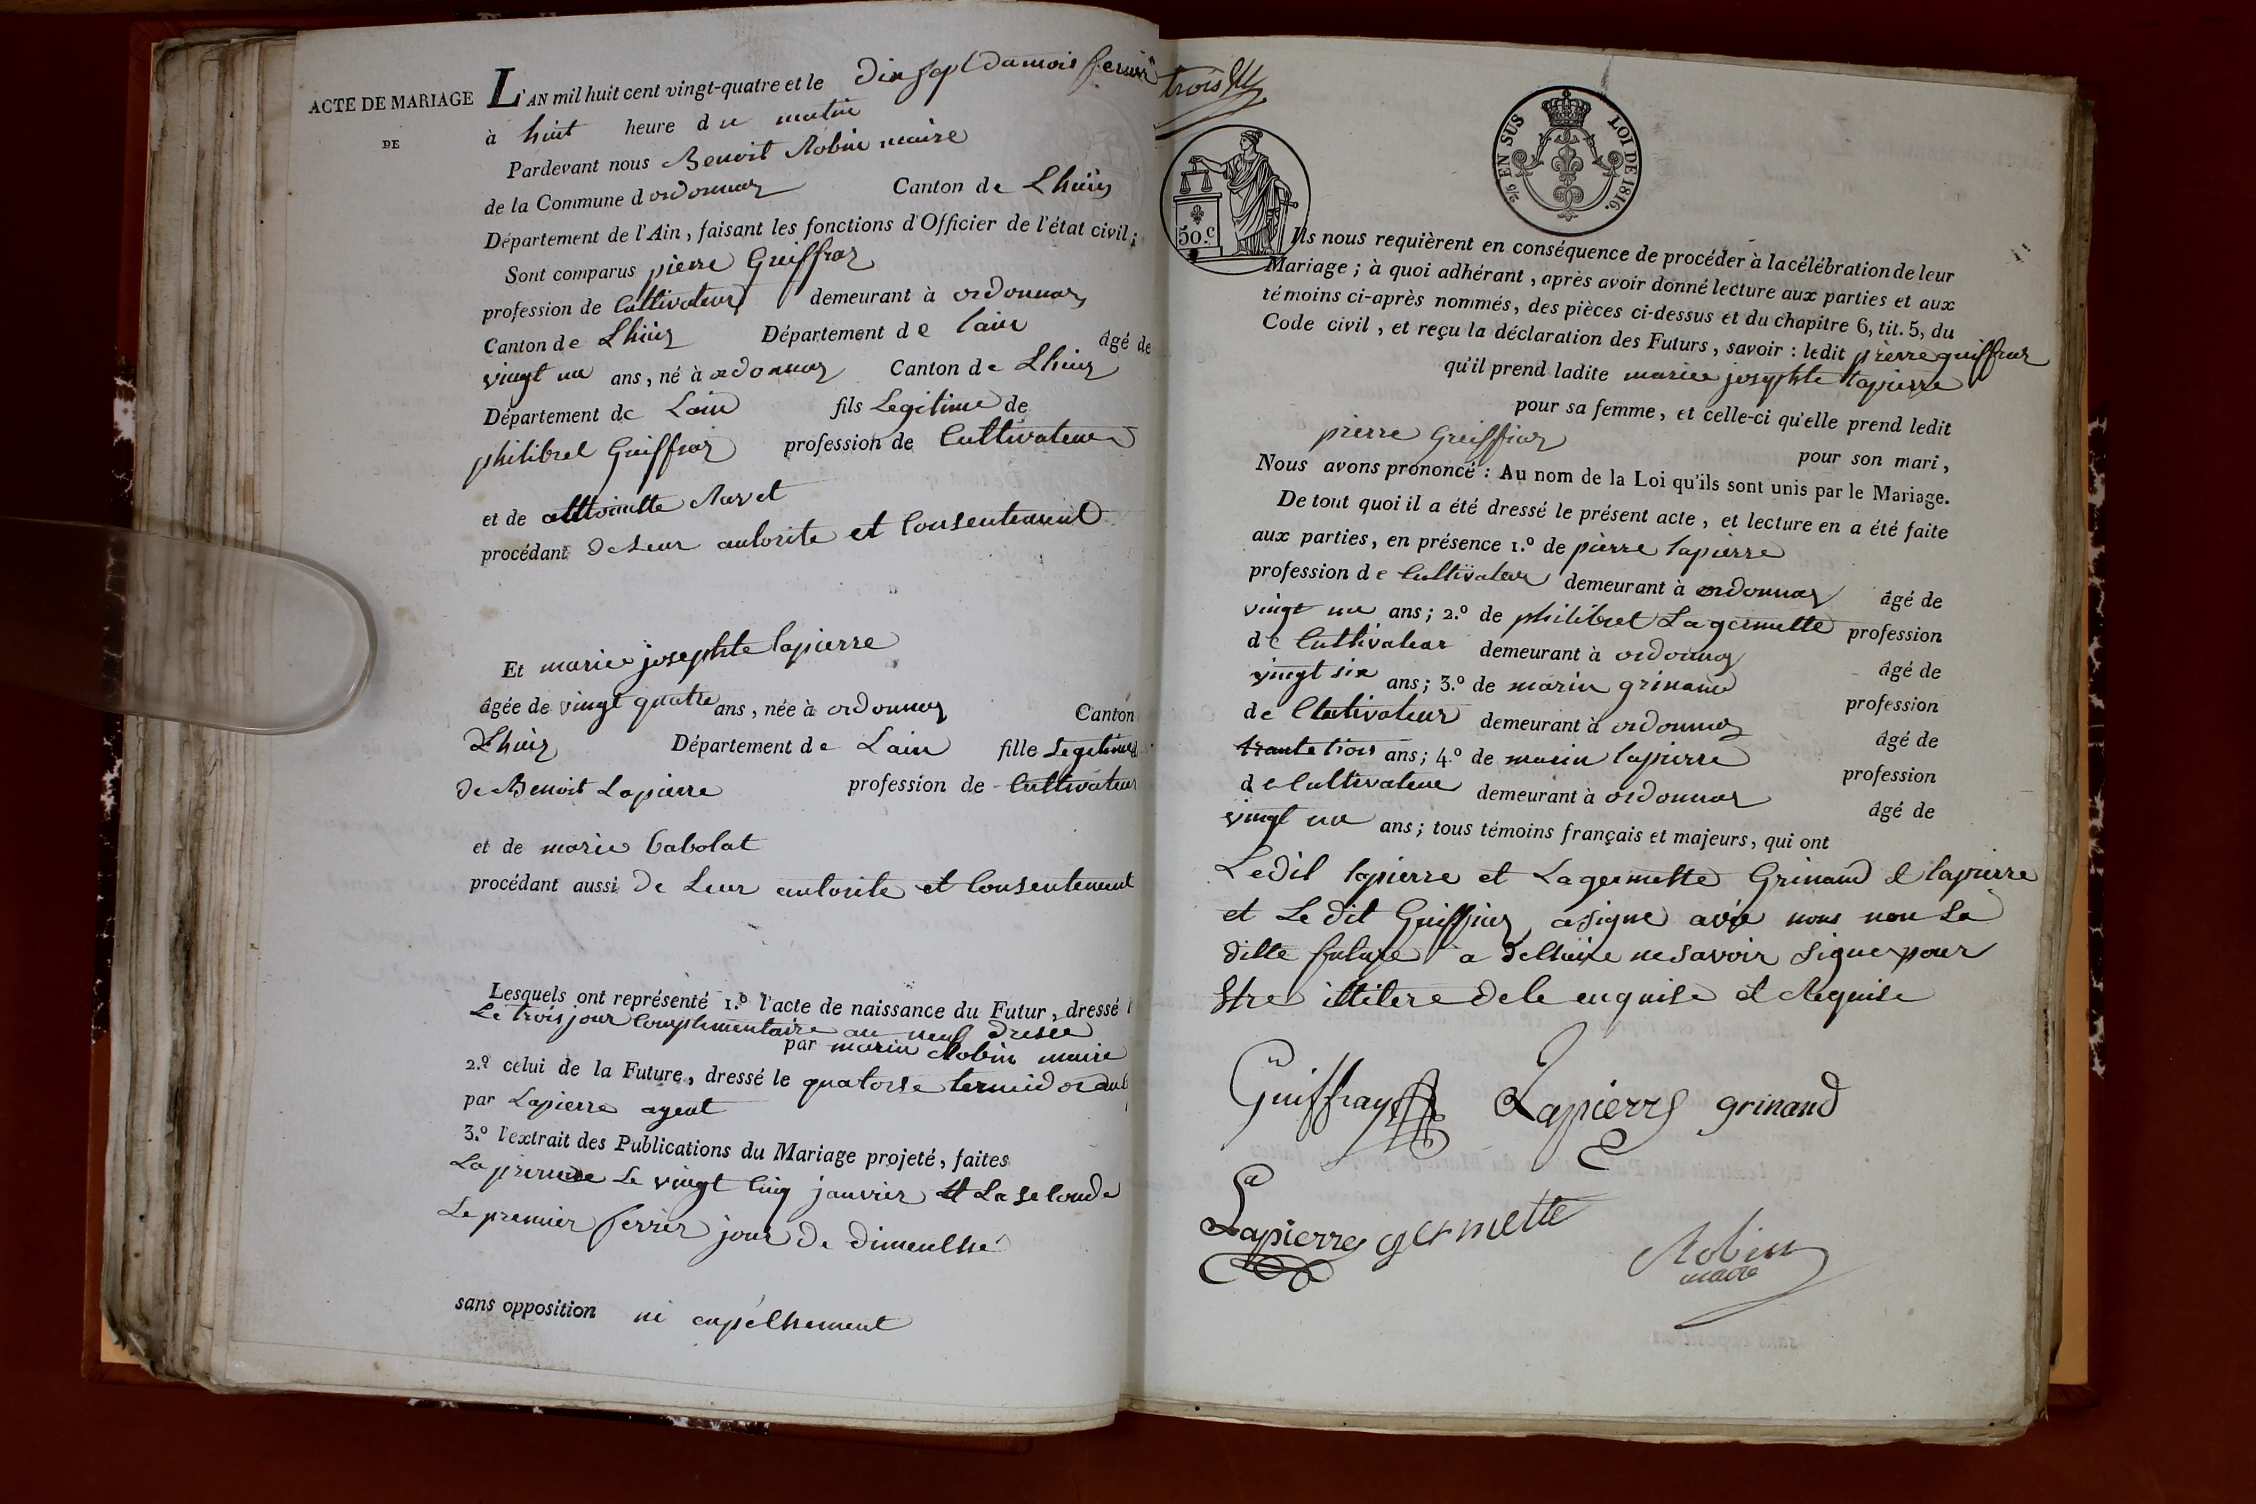 ACTE DE MARIAGE
DE
L'AN mil huit cent vingt-quatre et le dix sept du mois fevrier
à huit heure du matin
Pardevant nous Benoit Robin maire
de la Commune d ordonnaz Canton de Lhuis
Département de l'Ain, faisant les fonctions d'Officier de l'état civil;
Sont comparus pierre Guiffraz
profession de Cultivateur demeurant à ordonnaz
Canton de Lhuis Département de lain âgé de
vingt un ans, né à ordonnaz Canton de Lhuis
Département de Lain fils Legitime de
philibret Guiffraz profession de Cultivateur
et de Ravet
procédant de Leur autorite et Consentement
Et marie josephte lapierre
âgée de vingt quatre ans, née à ordonnaz Canton
Lhuis Département de Lain fille Legitime
de Benoit Lapierre profession de Cultivateur
et de marie babolat
procédant aussi de Leur autorite et Consentement
Lesquels ont représenté 1.º l'acte de naissance du Futur, dressé
Le trois jour Complimentaire an neuf dresse
par marin Robin maire
2.º celui de la Future, dressé le quatorse termidor
par Lapierre agent
3.º l'extrait des Publications du Mariage projeté, faites
La premiere Le vingt Cinq janvier et La seConde
Le premier fevrier jour de dimenche
sans opposition ni enpéchement
trois
50.c
2/6 EN SUS LOI DE 1816.
Ils nous requièrent en conséquence de procéder à la célébration de leur
Mariage; à quoi adhérant, après avoir donné lecture aux parties et aux
témoins ci-après nommés, des pièces ci-dessus et du chapitre 6, tit. 5, du
Code civil, et reçu la déclaration des Futurs, savoir: ledit pierre guiffraz
qu'il prend ladite marie josephte lapierre
pour sa femme, et celle-ci qu'elle prend ledit
pierre Guiffraz pour son mari,
Nous avons prononcé: Au nom de la Loi qu'ils sont unis par le Mariage.
De tout quoi il a été dressé le présent acte, et lecture en a été faite
aux parties, en présence 1.º de pierre lapierre
profession de Cultivateur demeurant à ordonnaz âgé de
vingt un ans; 2.º de philibret Lagermette profession
de Cultivateur demeurant à ordonnaz âgé de
vingt six ans; 3.º de marin grinand profession
de Cultivateur demeurant à ordonnaz âgé de
trante trois ans; 4.º de marin lapierre profession
de Cultivateur demeurant à ordonnaz âgé de
vingt un ans; tous témoins français et majeurs, qui ont
Ledit lapierre et Lagermette Grinand et lapierre
et Le dit Guiffraz a signe avec nous non La
ditte future a declaire ne savoir signer pour
Stre illitere de le enquise et Requise
Guiffray Lapierre grinand
La
Lapierre germette
Robin
maire